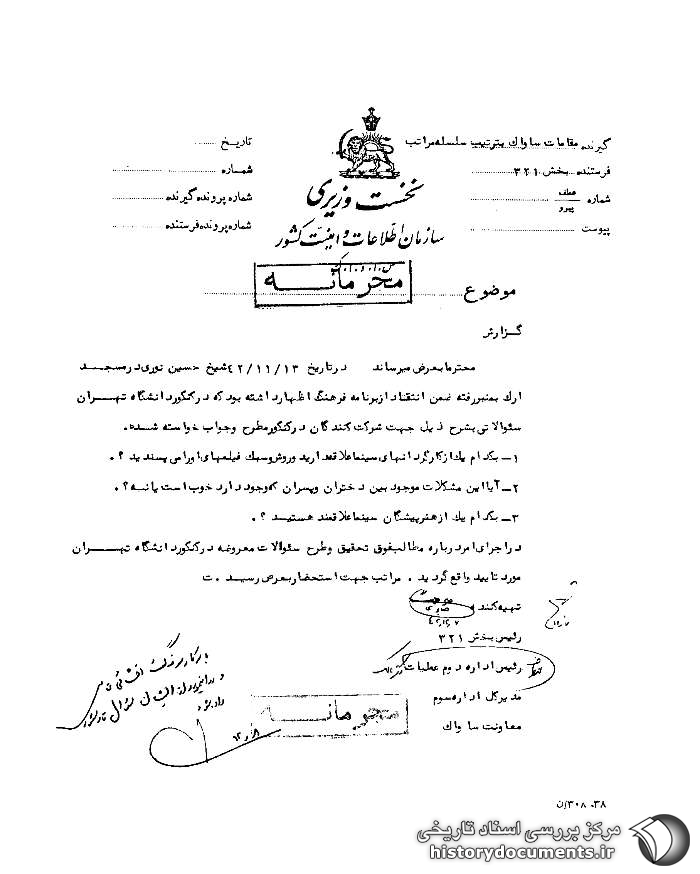 گیرنده مقامات ساواک بترتیب سلسله مراتب
فرستنده بخش ۳۲۱
شماره عطف پیرو
پیوست
تاریخ
شماره
شماره پرونده گیرنده
شماره پرونده فرستنده
نخست وزیری
سازمان اطلاعات و امنیت کشور
س.ا.و.ا.ک
محرمانه
موضوع
گزارش
محترما بعرض میرساند در تاریخ ۴۲/۱۱/۱۳ شیخ حسین نوری در مسجد
ارک بمنبر رفته ضمن انتقاد از برنامه فرهنگ اظهار داشته بود که در کنکور دانشگاه تهران
سئوالاتی بشرح ذیل جهت شرکت کنندگان در کنکور مطرح و جواب خواسته شده.
۱- بکدام یک از کارگردانهای سینما علاقه دارید و روش و سبک فیلمهای اورا می پسندید ؟.
۲- آیا این مشکلات موجود بین دختران و پسران که وجود دارد خوب است یا نه ؟.
۳- بکدام یک از هنرپیشگان سینما علاقمند هستید ؟.
در اجرای امر درباره مطالب فوق تحقیق و طرح سئوالات معروضه در کنکور دانشگاه تهران
مورد تایید واقع گردید . مراتب جهت استحضار بعرض رسید . ت
تهیه کننده
رئیس بخش ۳۲۱
رئیس اداره دوم عملیات
مدیرکل اداره سوم
معاونت ساواک
محرمانه
۳۰۸-۳۸/ن
مرکز بررسی اسناد تاریخی
historydocuments.ir